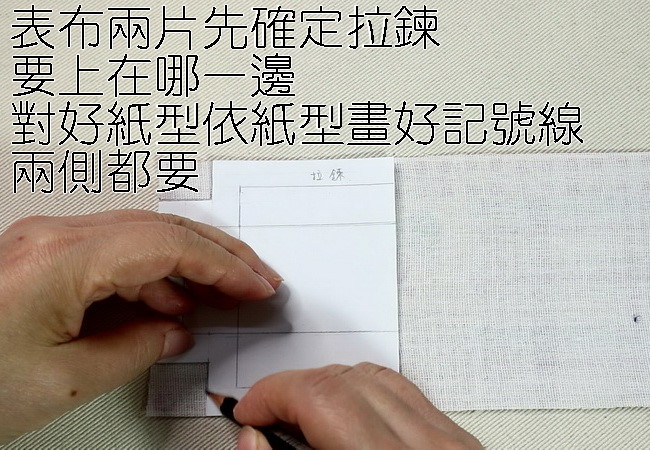 表布兩片先確定拉鍊
要上在哪一邊
對好紙型依紙型畫好記號線
兩側都要
拉鍊